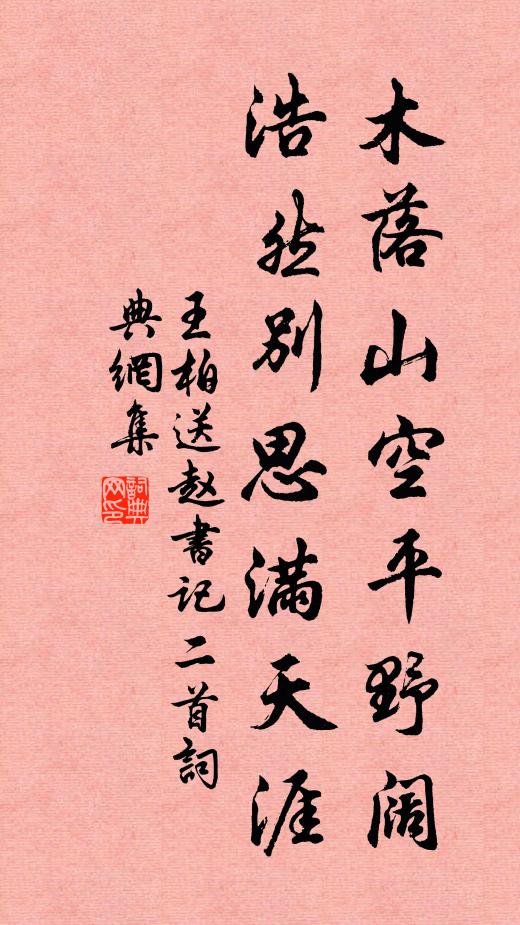 木落山空平野阔
浩然别思满天涯
王柏送赵书记二首词
典網集
詞典网印